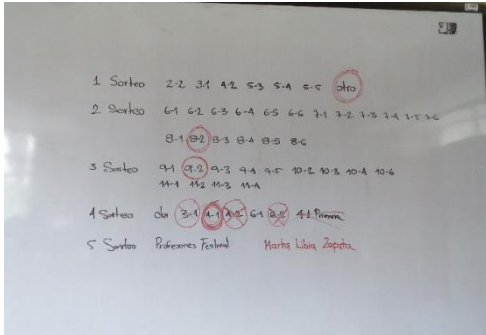 1 Sorteo 2-2 3-1 4-2 5-3 5-4 5-5 otro
2 Sorteo 6-1 6-2 6-3 6-4 6-5 6-6 7-1 7-2 7-3 7-4 7-5 7-6
8-1 8-2 8-3 8-4 8-5 8-6
3 Sorteo 9-1 9-2 9-3 9-4 9-5 10-2 10-3 10-4 10-6
11-1 11-2 11-3 11-4
4 Sorteo 3-1 1-1 4-2 6-1 2-2 4-1 Primera
5 Sorteo Profesores Festival Martha Libia Zapata